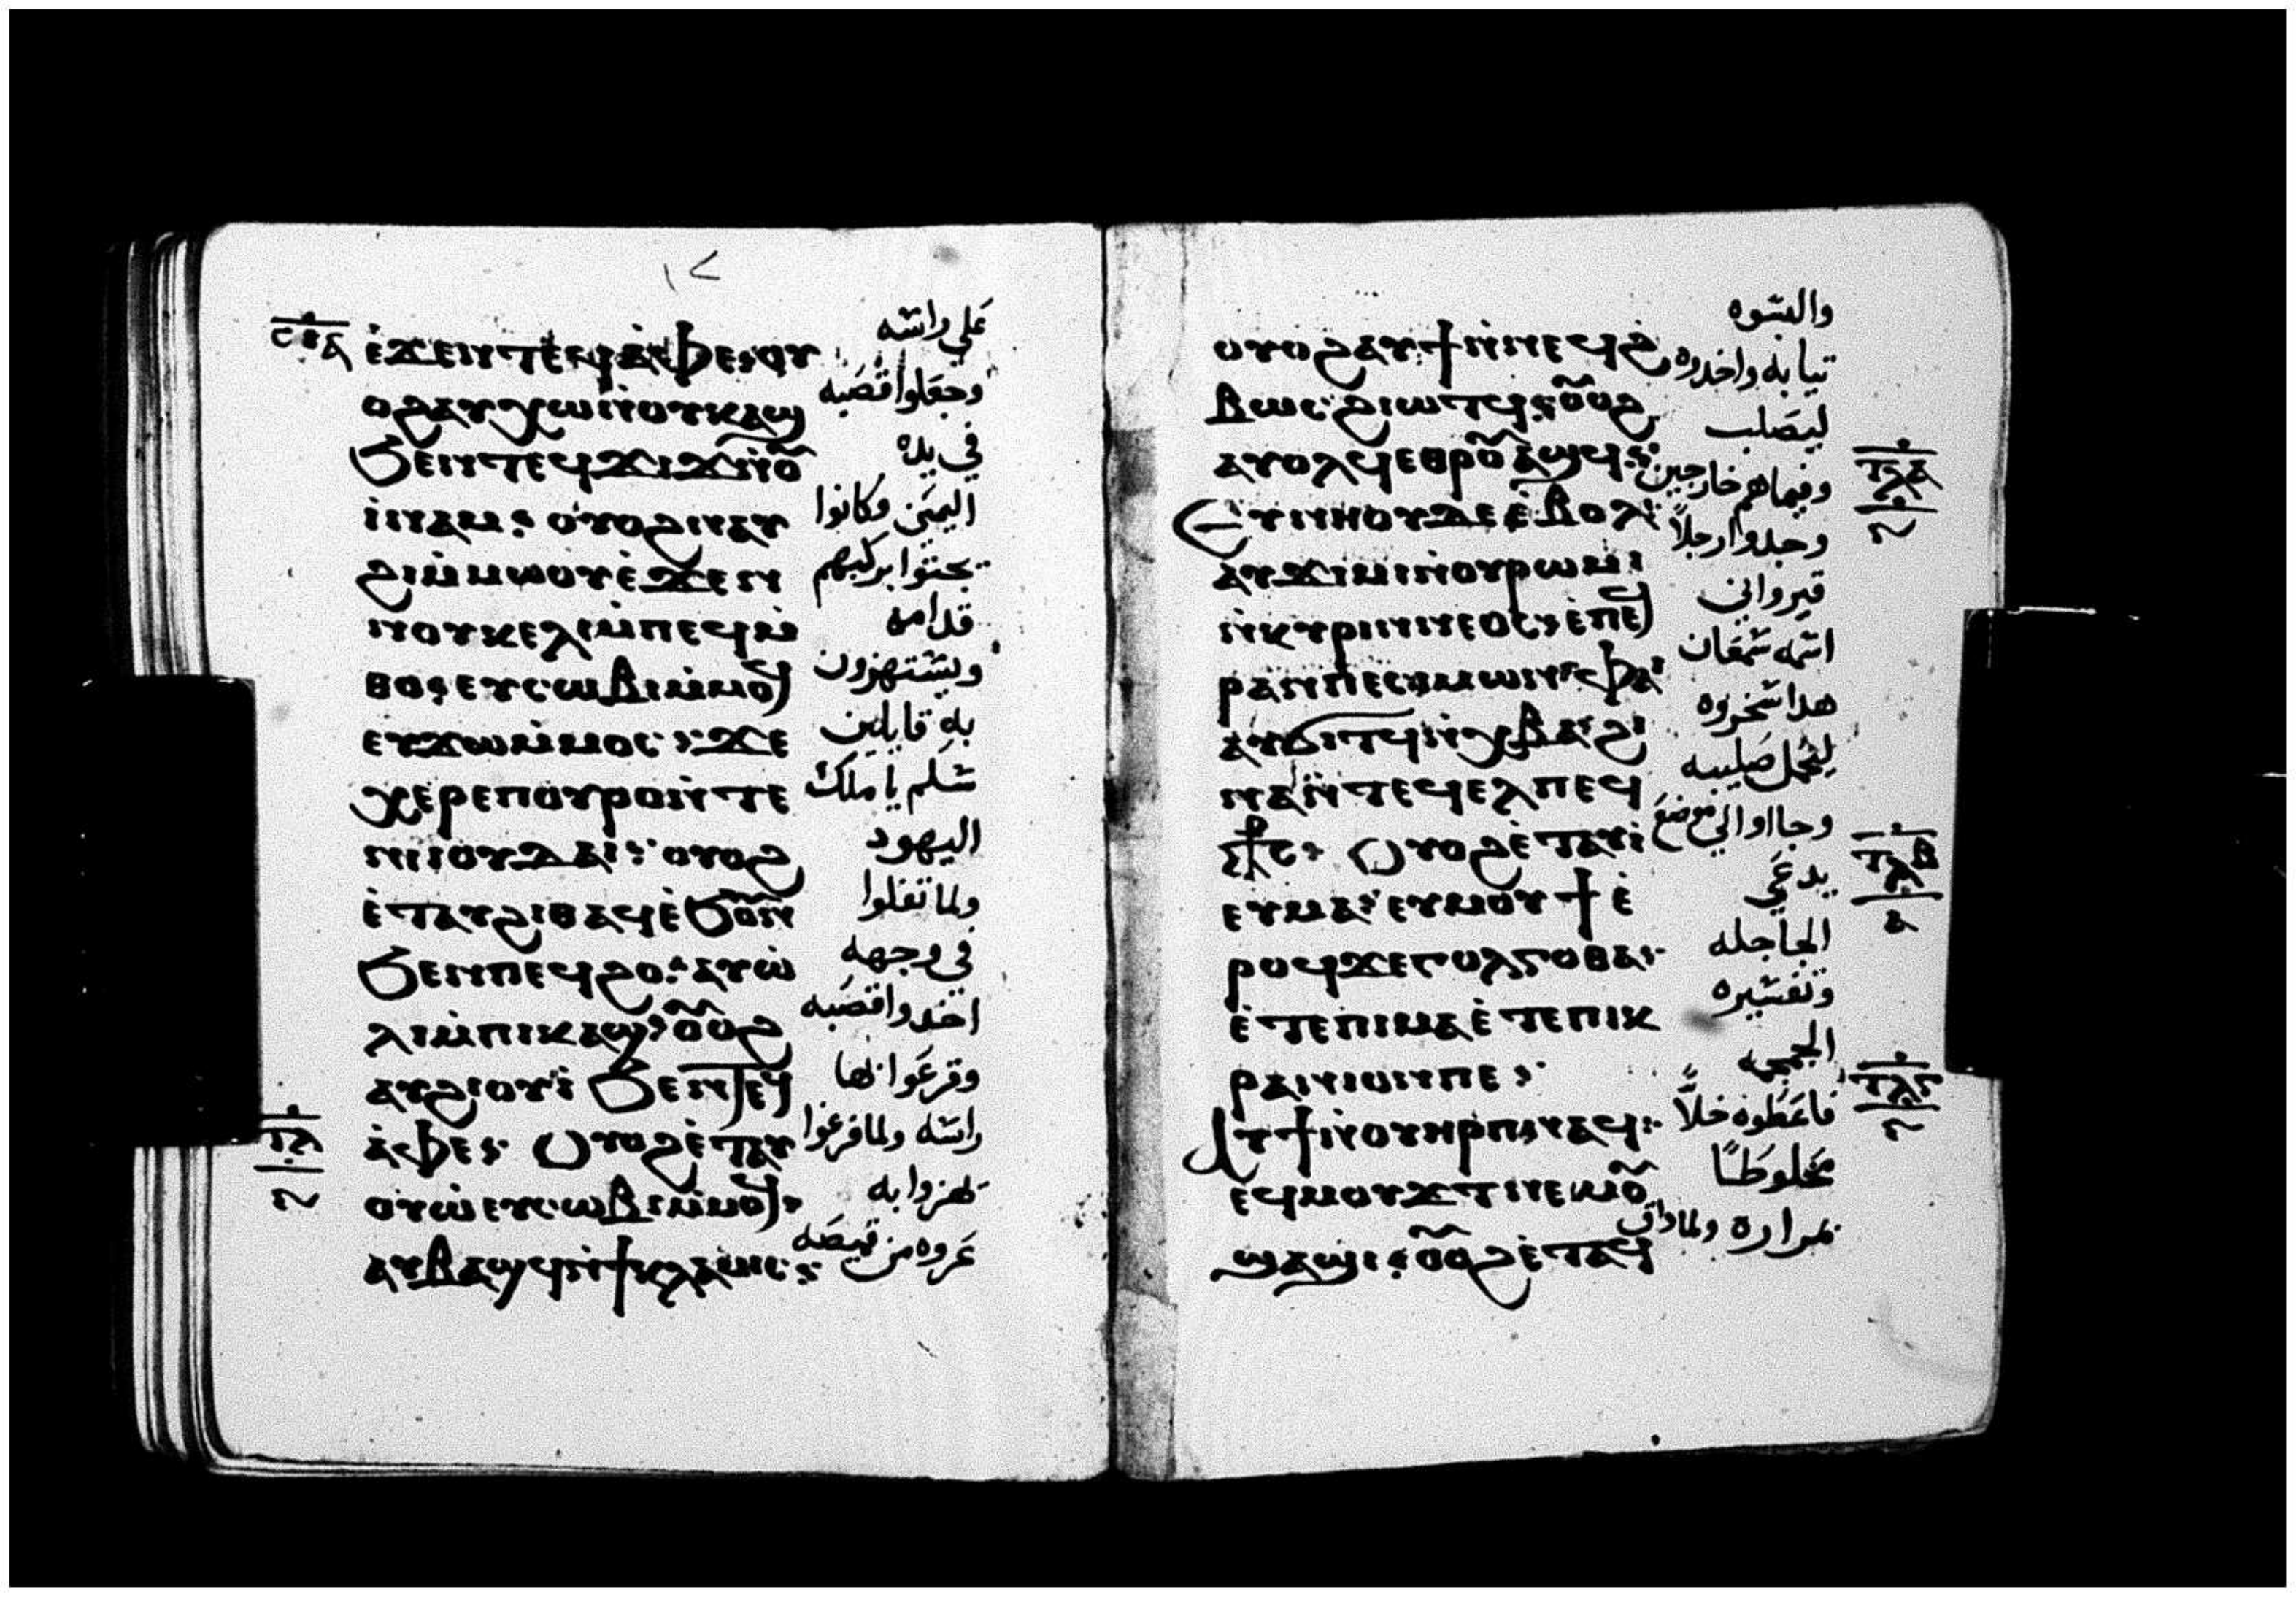 ⲉ̀ϫⲉⲛⲧⲉϥⲁ̀ⲫⲉ⳿ⲟⲩ
ⲟϩⲁⲩⲭⲱⲛ̀ⲟⲩⲕⲁϣ
ϧⲉⲛⲧⲉϥϫⲓϫⲛ̀ⲟ̅
ⲓ̀ⲛⲁⲙ⳿ ⲟⲩⲟϩⲛⲁⲩ
ϩⲓⲙ̀ⲙⲱⲟⲩⲉ̀ϫⲉⲛ
ⲛⲟⲩⲕⲉⲗⲓⲙ̀ⲡⲉϥⲙ̀
ⲑⲟ⳿ⲉⲩⲥⲱⲃⲓⲙ̀ⲙⲟϥ
ⲉⲩϫⲱⲙ̀ⲙⲟⲥ⳿ϫⲉ
ⲭⲉⲣⲉⲡⲟⲩⲣⲟⲛ̀ⲧⲉ
ⲛⲓⲓⲟⲩⲇⲁⲓ⳿ ⲟⲩⲟϩ
ⲉ̀ⲧⲁⲩϩⲓⲑⲁϥⲉ̀ϧⲟⲩⲛ
ϧⲉⲛⲡⲉϥϩⲟ⳿ⲁⲩⲱ̀
ⲗⲓⲙ̀ⲡⲓⲕⲁϣ⳿ⲟⲩⲟϩ
ⲁⲩϩⲓⲟⲩⲓ̀ ϧⲉⲛⲧⲉϥ
ⲁ̀ⲫⲉ⳿ ⲟⲩⲟϩⲉ̀ⲧⲁⲩ
ⲟⲩⲱ̀ⲉⲩⲥⲱⲃⲓⲙ̀ⲙⲟϥ⳿
ⲁⲩⲃⲁϣϥⲛ̀ϯⲭⲗⲁⲙⲓⲥ⳿
على راسه
وجعلوا قصبه
في يده
اليمني وكانوا
يجثوا بركبهم
قدامه
ويستهزون
به قايلين
سلم يا ملك
اليهود
ولما تفلوا
في وجهه
اخدوا قصبه
وقرعوا بها
راسه ولما فرغوا
يهزوا به
عروه من قميصه
ⲧⲗ
ⲟⲩⲟϩⲁⲩϯⲛ̀ⲛⲉϥϩ
ⲃⲱⲥϩⲓⲱⲧϥ⳿ⲟⲩⲟϩ
ⲁⲩⲟⲗϥⲉⲑⲣⲟⲩⲁϣϥ⳿
ⲉⲩⲛⲏⲟⲩⲇⲉⲉ̀ⲃⲟⲗ⳿
ⲁⲩϫⲓⲙⲓⲛ̀ⲟⲩⲣⲱⲙⲓ
ⲛ̀ⲕⲩⲣⲓⲛⲛⲉⲟⲥ⳿ⲉ̀ⲡⲉϥ
ⲣⲁⲛⲡⲉⲥⲓⲙⲱⲛ⳿ⲫⲁⲓ
ⲁⲩϭⲓⲧϥⲛ̀ⲭⲃⲁ⳿ϩⲓ
ⲛⲁⲛ̀ⲧⲉϥⲉⲗⲡⲉϥ
ⲥ⳨ⲥ⳿ ⲟⲩⲟϩⲉ̀ⲧⲁⲩⲓ̀
ⲉⲩⲙⲁ⳿ⲉⲩⲙⲟⲩϯⲉ̀
ⲣⲟϥϫⲉⲅⲟⲗⲅⲟⲑⲁ⳿
ⲉ̀ⲧⲉⲡⲓⲙⲁⲉ̀ⲧⲉⲡⲓⲕ
ⲣⲁⲛⲓⲟⲛⲡⲉ⳿
ⲁⲩϯⲛ̀ⲟⲩⲏⲣⲡⲛⲁϥ⳿
ⲉϥⲙⲟⲩϫⲧⲛⲉⲙⲟ̅
ϣⲁϣⲓ⳿ⲟⲩⲟϩⲉ̀ⲧⲁϥ
والبسوه
تيابه واخدوه
ليصلب
وفيما هم خارجين
وجدوا رجلاً
قيرواني
اسمه سمعان
هدا سخروه
ليحمل صليبه
وجااوا الي موضع
يدعي
الجاجله
وتفسيره
الجمجمه
فاعطوه خلاً
مخلوطًا
بمرارة ولما داق
ⲧⲗⲁ
ⲧⲗⲃ
ⲧⲗⲅ